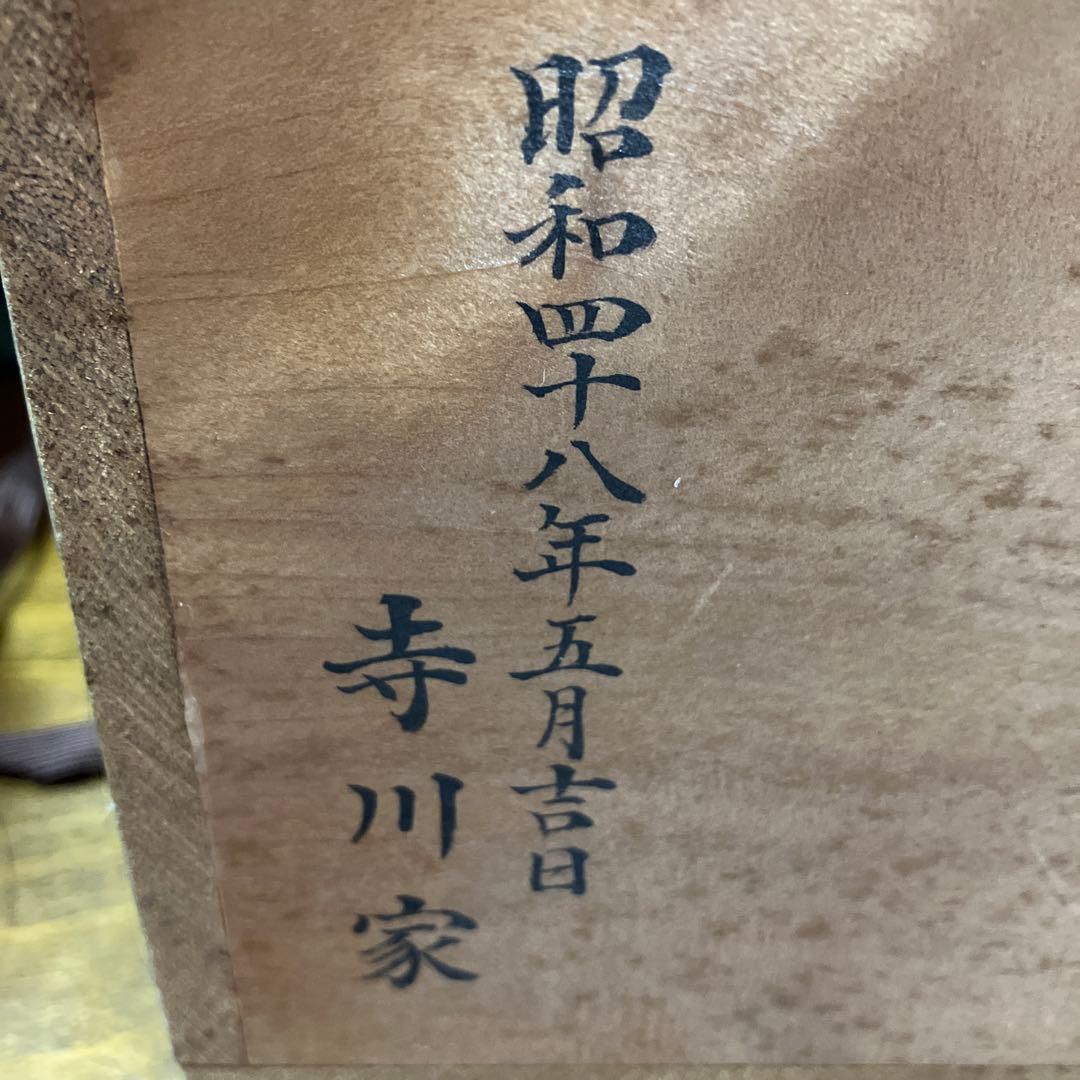 昭和四十八年五月吉日
寺川家